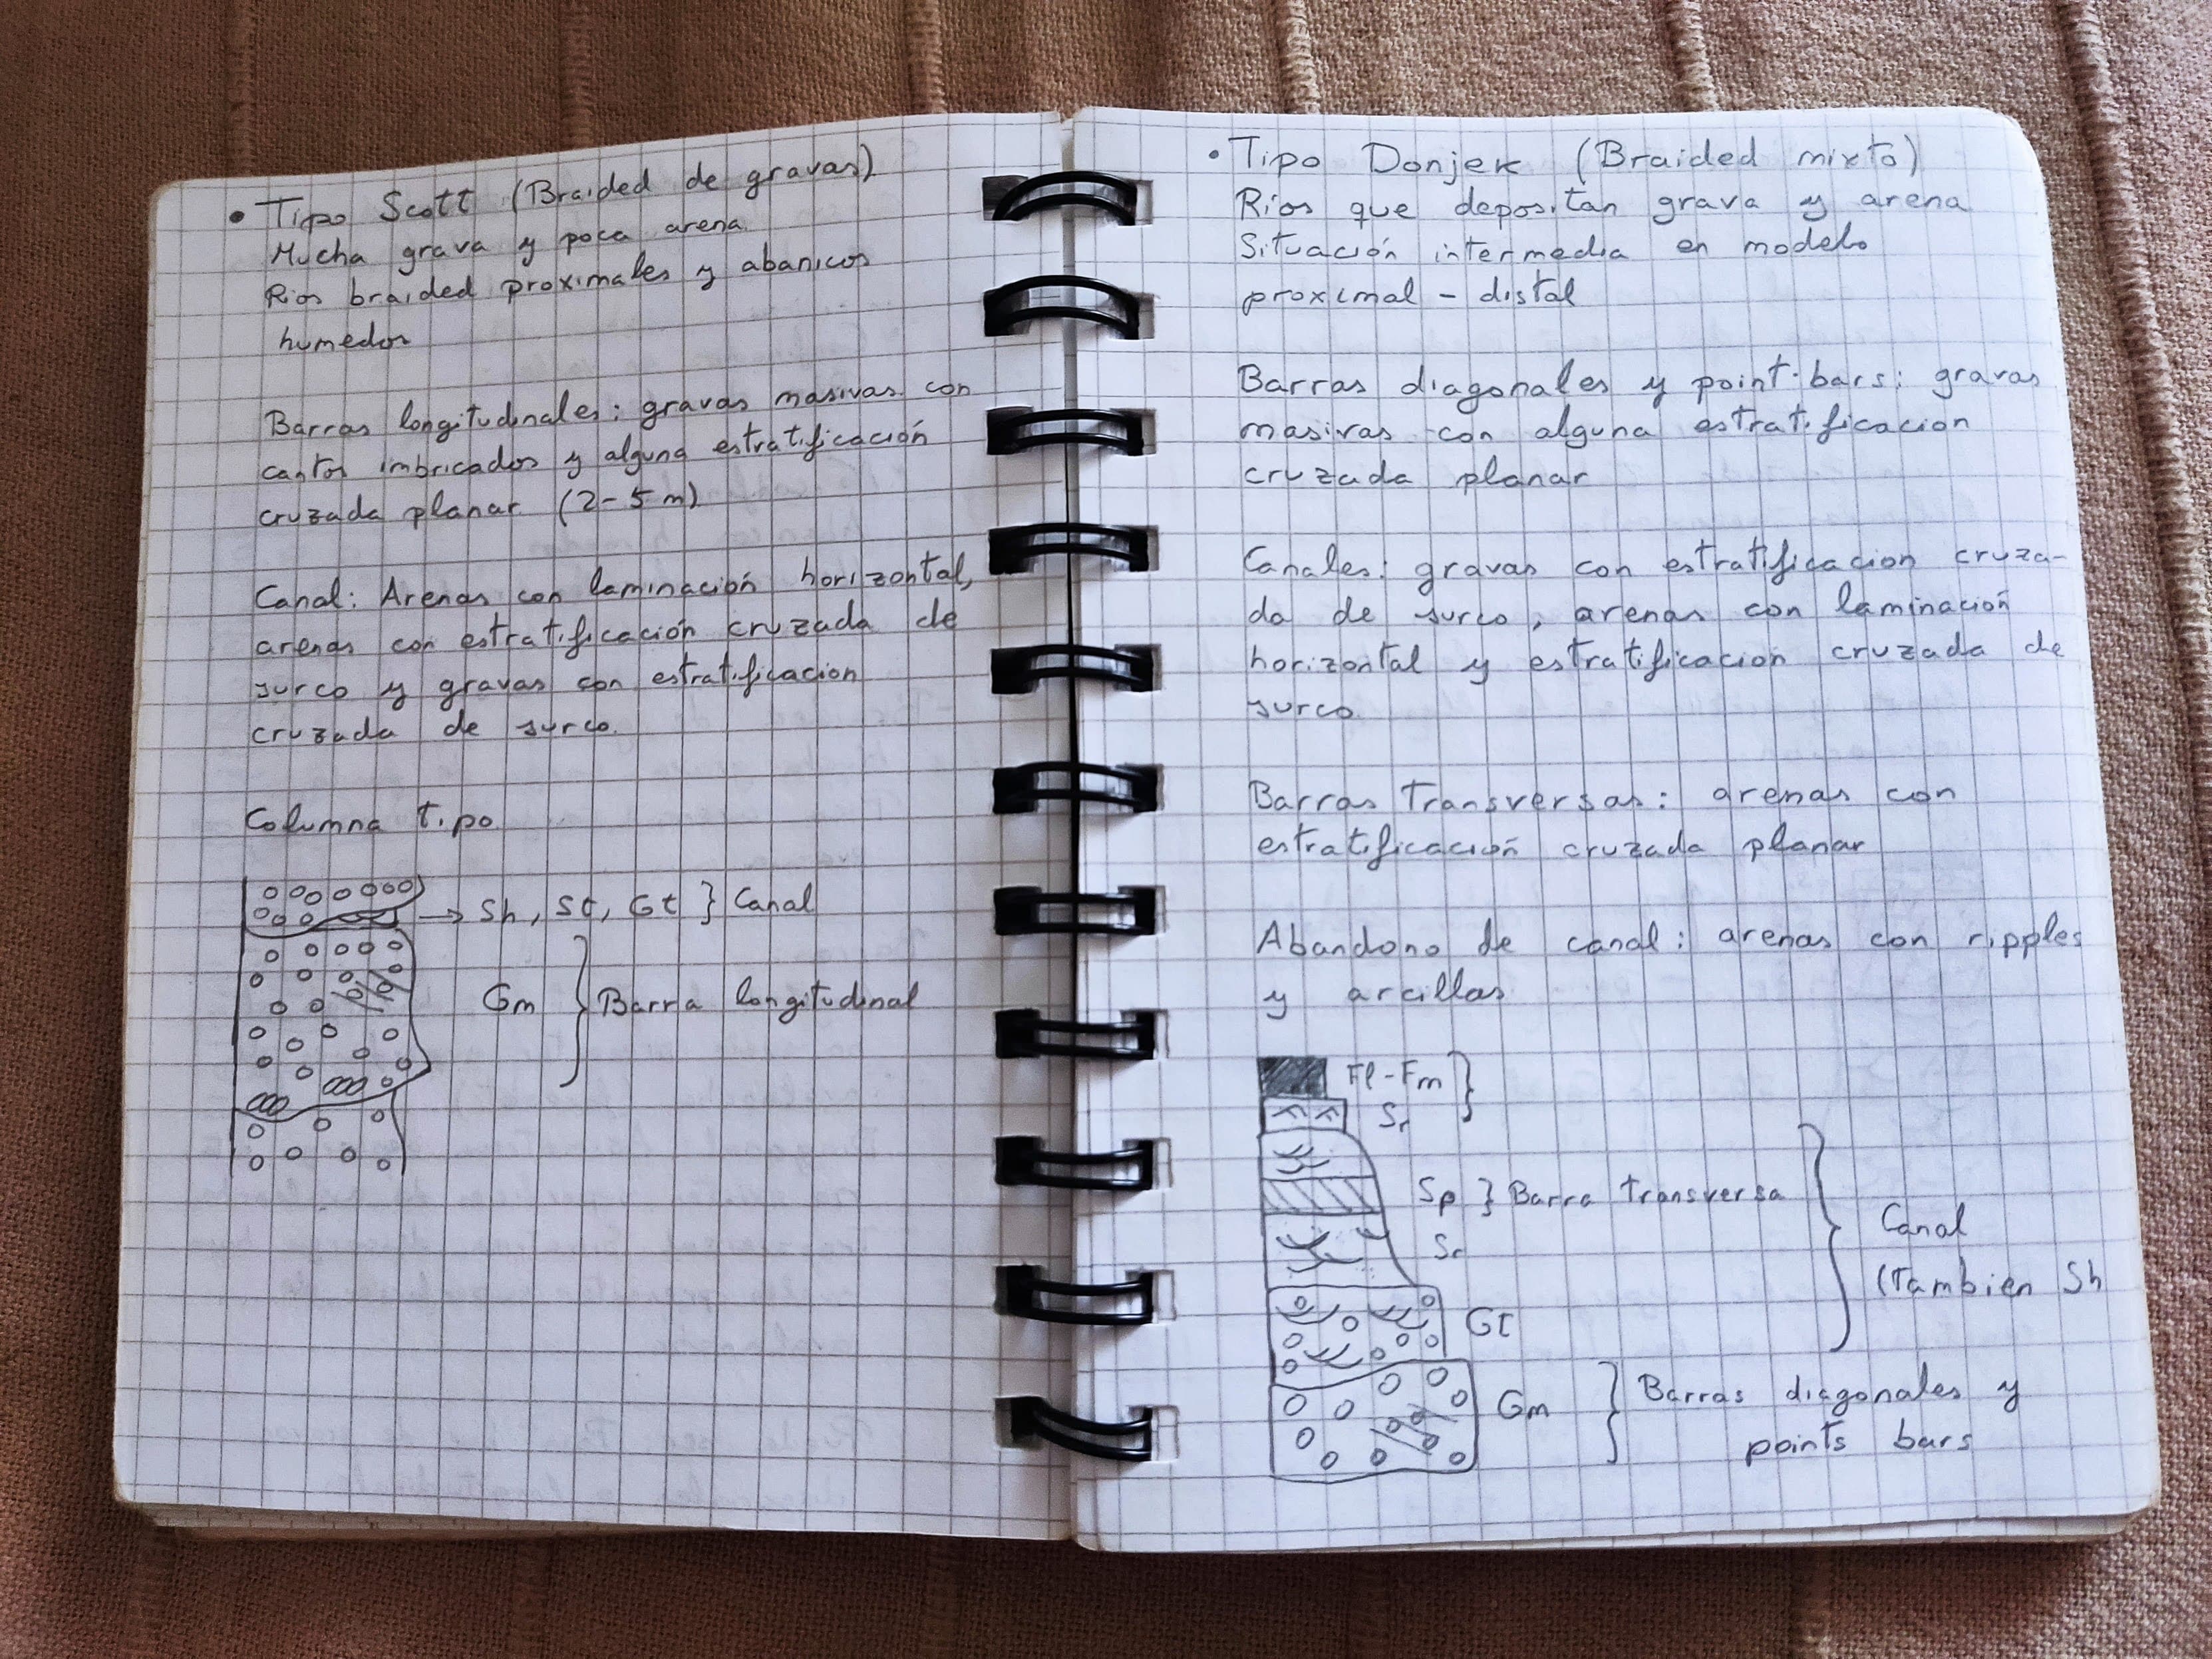 • Tipo Scott (Braided de gravas)
Mucha grava y poca arena.
Rios braided proximales y abanicos
humedos
Barras longitudinales: gravas masivas con
cantos imbricados y alguna estratificación
cruzada planar (2-5 m)
Canal: Arenas con laminación horizontal,
arenas con estratificación cruzada de
surco y gravas con estratificacion
cruzada de surco.
Columna tipo
→ Sh, St, Gt } Canal
Gm } Barra longitudinal
• Tipo Donjek (Braided mixto)
Rios que depositan grava y arena
Situación intermedia en modelo
proximal - distal
Barras diagonales y point-bars: gravas
masivas con alguna estratificacion
cruzada planar
Canales: gravas con estratificacion cruza-
da de surco, arenas con laminación
horizontal y estratificacion cruzada de
surco
Barras transversas: arenas con
estratificación cruzada planar
Abandono de canal: arenas con ripples
y arcillas
Fl-Fm }
Sr
Sp } Barra transversa
Canal
(Tambien Sh
Gt
Gm } Barras diagonales y
points bars